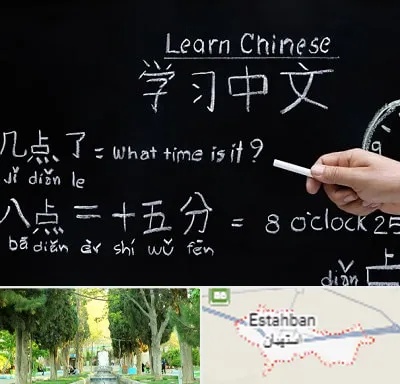 Learn Chinese
学习中文
几点了 = What time is it?
jǐ diǎn le
八点二十五分 = 8 o'clock 25
bā diǎn èr shí wǔ fēn
diǎn
9
Estahban
استهبان